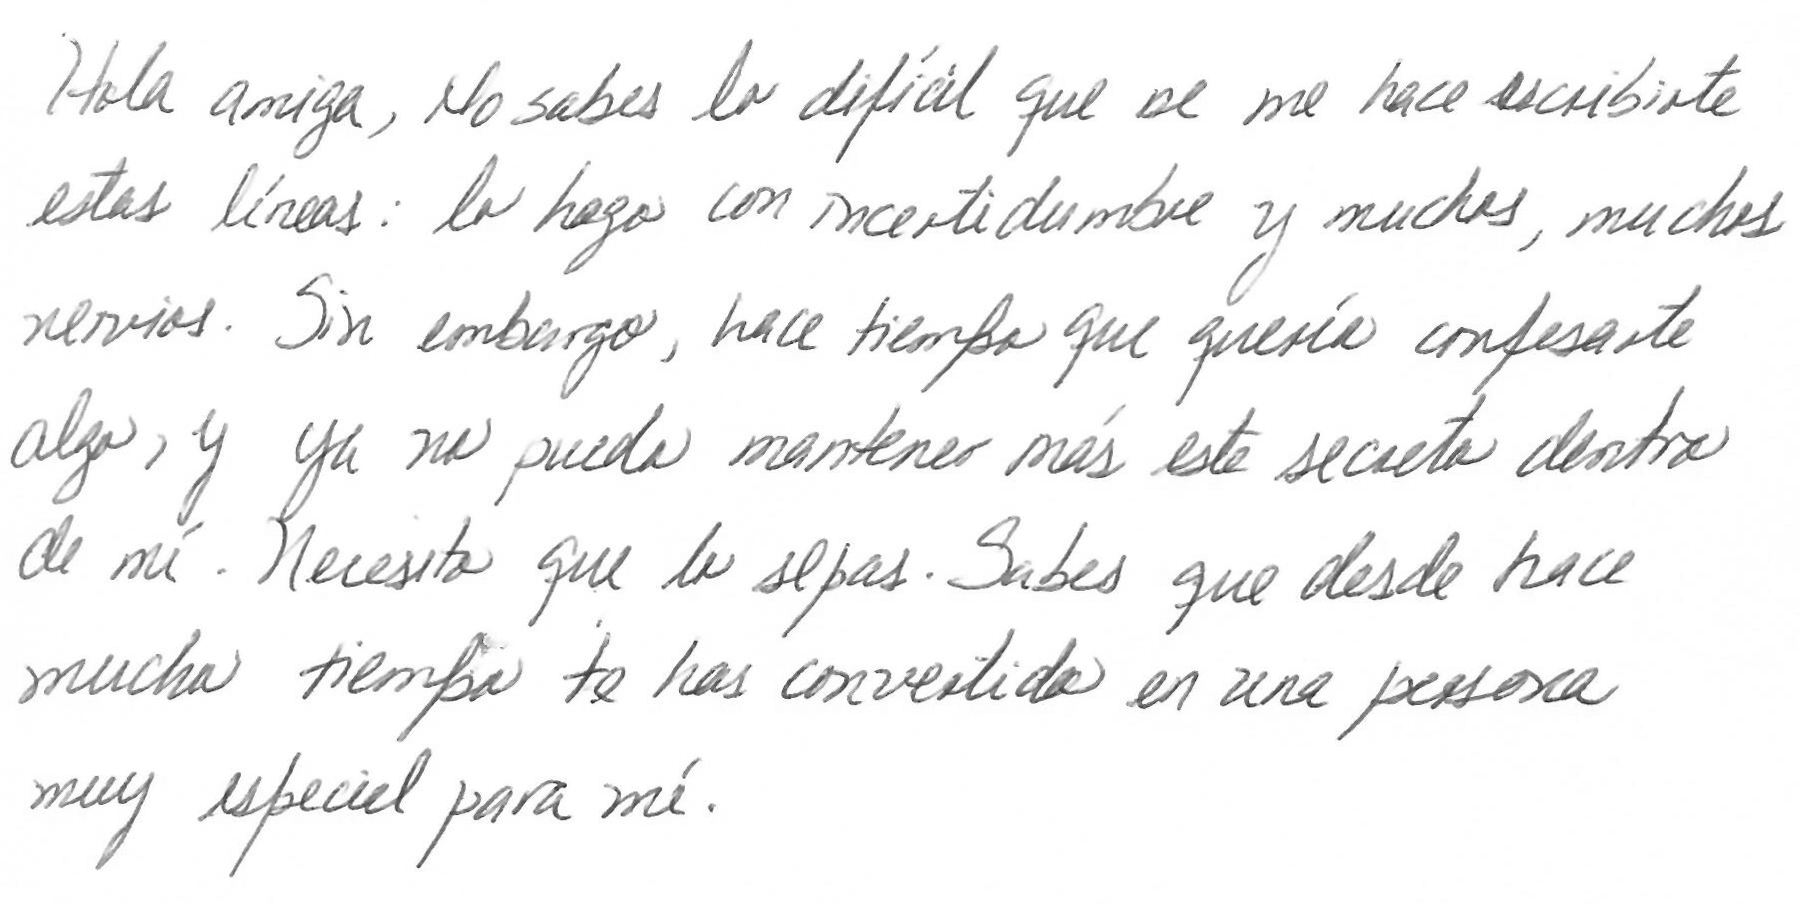 Hola amiga, No sabes lo difícil que se me hace escribirte
estas líneas: lo hago con incertidumbre y muchos, muchos
nervios. Sin embargo, hace tiempo que quería confesarte
algo, y ya no puedo mantener más este secreto dentro
de mí. Necesito que lo sepas. Sabes que desde hace
mucho tiempo te has convertido en una persona
muy especial para mí.